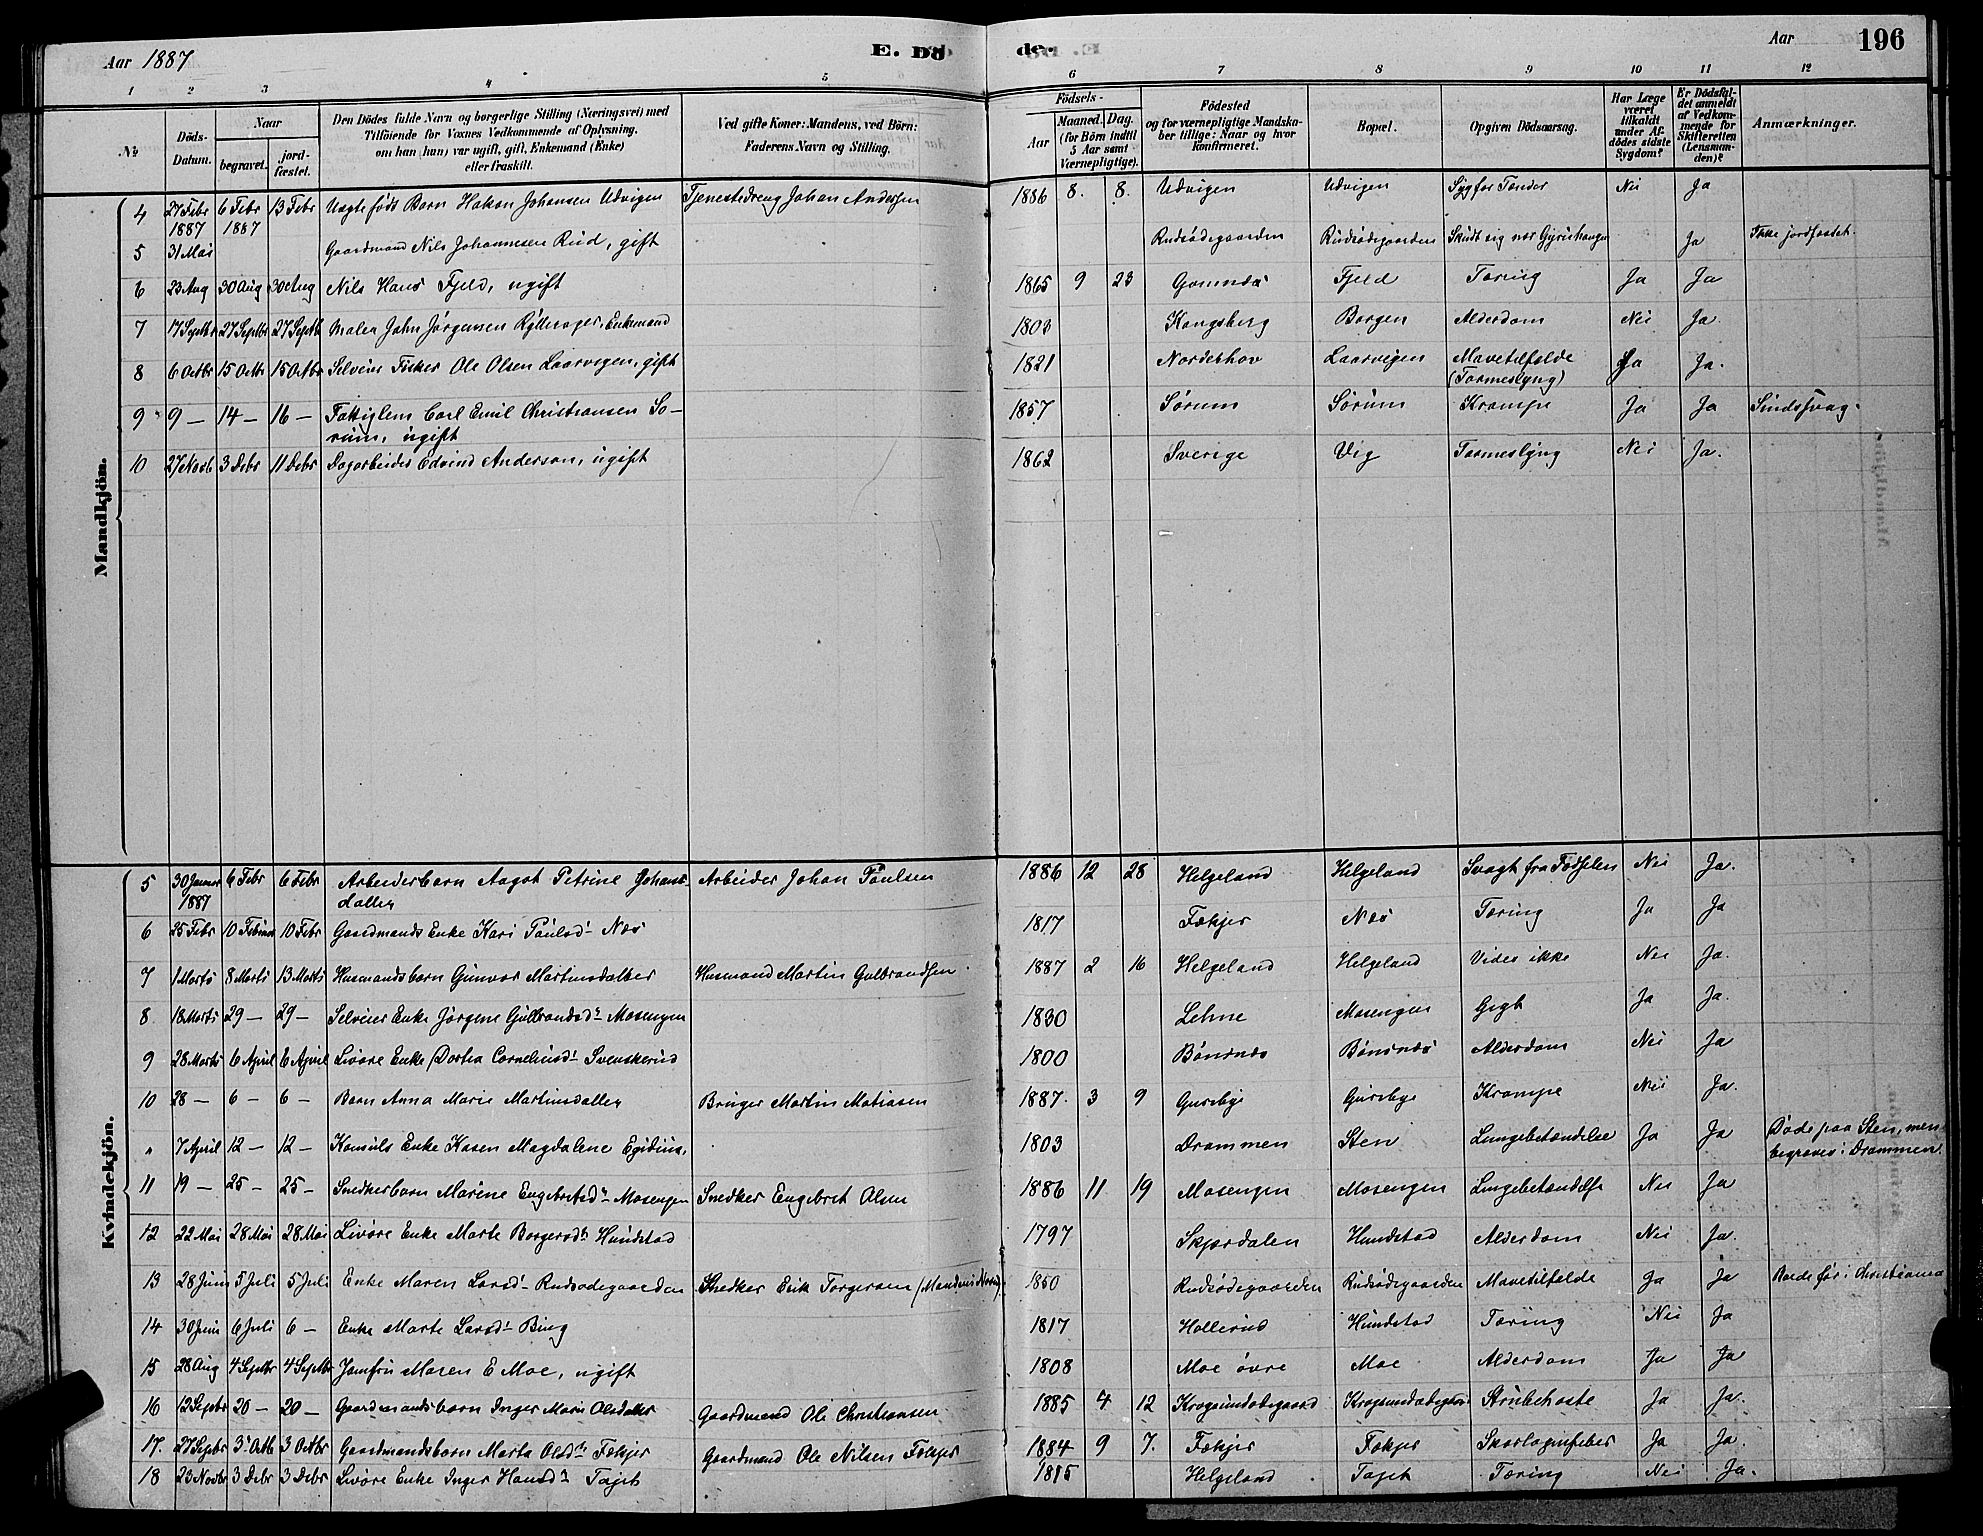 Aar 1887
E. Dö
de.
Aar
196
1 2 3 4 5 6 7 8 9 10 11 12
No
Döds-Datum.
Naar
begravet.
jord-fæstet.
Den Dödes fulde Navn og borgerlige Stilling (Næringsvei) med
Tilföiende for Voxnes Vedkommende af Oplysning,
om han (hun) var ugift, gift, Enkemand (Enke)
eller fraskilt.
Ved gifte Koner: Mandens, ved Börn:
Faderens Navn og Stilling.
Födsels-
Aar
Maaned. Dag.
(for Börn indtil
5 Aar samt
Værnepligtige).
Födested
og for værnepligtige Mandska-
ber tillige: Naar og hvor
Konfirmeret.
Bopæl.
Opgiven Dödsaarsag.
Har Læge
været
tilkaldt
under Af-
dödes sidste
Sygdom?
Er Dödsfal-
det anmeldt
af Vedkom-
mende for
Skifteretten
(Lensman-
den)?
Anmærkninger.
Mandkjön.
4 27 Febr 1887 6 Febr 1887 13 Febr Uægte født Barn Hakon Johansen Udvigen Tjenestedreng Johan Andersen 1886 8. 8. Udvigen Udvigen Syg for Tænder Nei Ja
5 31 Mai Gaardmand Nils Johannesen Rud, gift Rudsødegaarden Rudsødegaarden Skudt sig nær Gyrihaugen Ja Ikke jordfæstet
6 23 Aug 30 Aug 30 Aug Nils Hans Fjeld, ugift 1865 9 23 Gomnæs Fjeld Tæring Ja Ja
7 17 Septbr 27 Septbr 27 Septb Maler John Jørgensen Rytterager, Enkemand 1803 Kongsberg Borgen Alderdom Nei Ja
8 6 Octbr 15 Octbr 15 Octbr Selveier Fisker Ole Olsen Laarvigen, gift 1821 Norderhov Laarvigen Mavetilfælde
(Tarmeslyng) Ja Ja.
9 9 — 14 — 16 — Fattiglem Carl Emil Christiansen So-
rum, ugift 1857 Sørum Sørum Krampe Ja Ja Sindssvag.
10 27 Novb 3 Debr 11 Debr Dagarbeider Edvind Anderson, ugift 1862 Sverige Vig Tarmeslyng Nei Ja.
Kvindekjön.
5 30 Januar 1887 6 Febr 6 Febr Arbeiderbarn Aagot Petrine Johans-
datter Arbeider Johan Paulsen 1886 12 28 Helgeland Helgeland Svagt fra Fødselen Nei Ja.
6 25 Febr 10 Februar 10 Febr Gaardmands Enke Kari Paulsdr Næs 1817 Fækjer Næs Tæring Ja Ja
7 1 Marts 8 Marts 13 Marts Husmandsbarn Gunvor Martinsdatter Husmand Martin Gulbrandsen 1887 2 16 Helgeland Helgeland Vides ikke Nei Ja.
8 18 Marts 29 — 29 — Selveier Enke Jørgene Gulbrandsdr Mosengen 1830 Lehne Mosengen Gigt Ja Ja.
9 28 Marts 6 April 6 April Livøre Enke Dortea Corneliusdr Svenskerud 1800 Bønsnæs Bønsnæs Alderdom Nei Ja
10 28 — 6 — 6 — Barn Anna Marie Martinsdatter Bruger Martin Matiasen 1887. 3 9 Gursby Gursby Krampe Nei Ja.
" 7 April 12 — 12 — Konsuls Enke Karen Magdalene Egidius, 1803 Drammen Sten Lungebetændelse Ja Ja Døde paa Sten, men
begraves i Drammen
11 19 — 25 — 25 — Snedkerbarn Marine Engebretsdr Mosengen Snedker Engebret Olsen 1886 11 19 Mosengen Mosengen Lungebetændelse Nei Ja
12 22 Mai 28 Mai 28 Mai Livøre Enke Marte Borgersdr Hundstad 1797 Skjærdalen Hundstad Alderdom Nei Ja.
13 28 Juni 5 Juli 5 Juli Enke Maren Larsdr Rudsødegaarden Snedker Erik Torgersen (Mandens Navn) 1850 Rudsødegaarden Rudsødegaarden Mavetilfælde Ja Ja Boede før i Christiania
14 30 Juni 6 Juli 6 — Enke Marte Larsdr Bing 1817 Hollerud Hundstad Tæring Nei Ja
15 28 Aug 4 Septbr 4 Septbr Jomfru Maren E Moe, ugift 1808 Moe øvre Moe Alderdom Ja Ja
16 12 Septbr 20 — 20 — Gaardmandsbarn Inger Marie Olsdatter Gaardmand Ole Christiansen 1885 4 12 Krogsundødegaard Strubehoste Ja Ja.
17. 27 Septbr 3 Octb 3 Octbr Gaardmandsbarn Marta Olsdr Fækjer Gaardmand Ole Nilsen Fækjer 1884 9 7. Fækjer Fækjer Skarlaginsfeber Ja Ja.
18 23 Novbr 3 Debr 3 Debr Livøre Enke Inger Hansdr Tajet 1815 Helgeland Tajet Tæring Nei Ja.